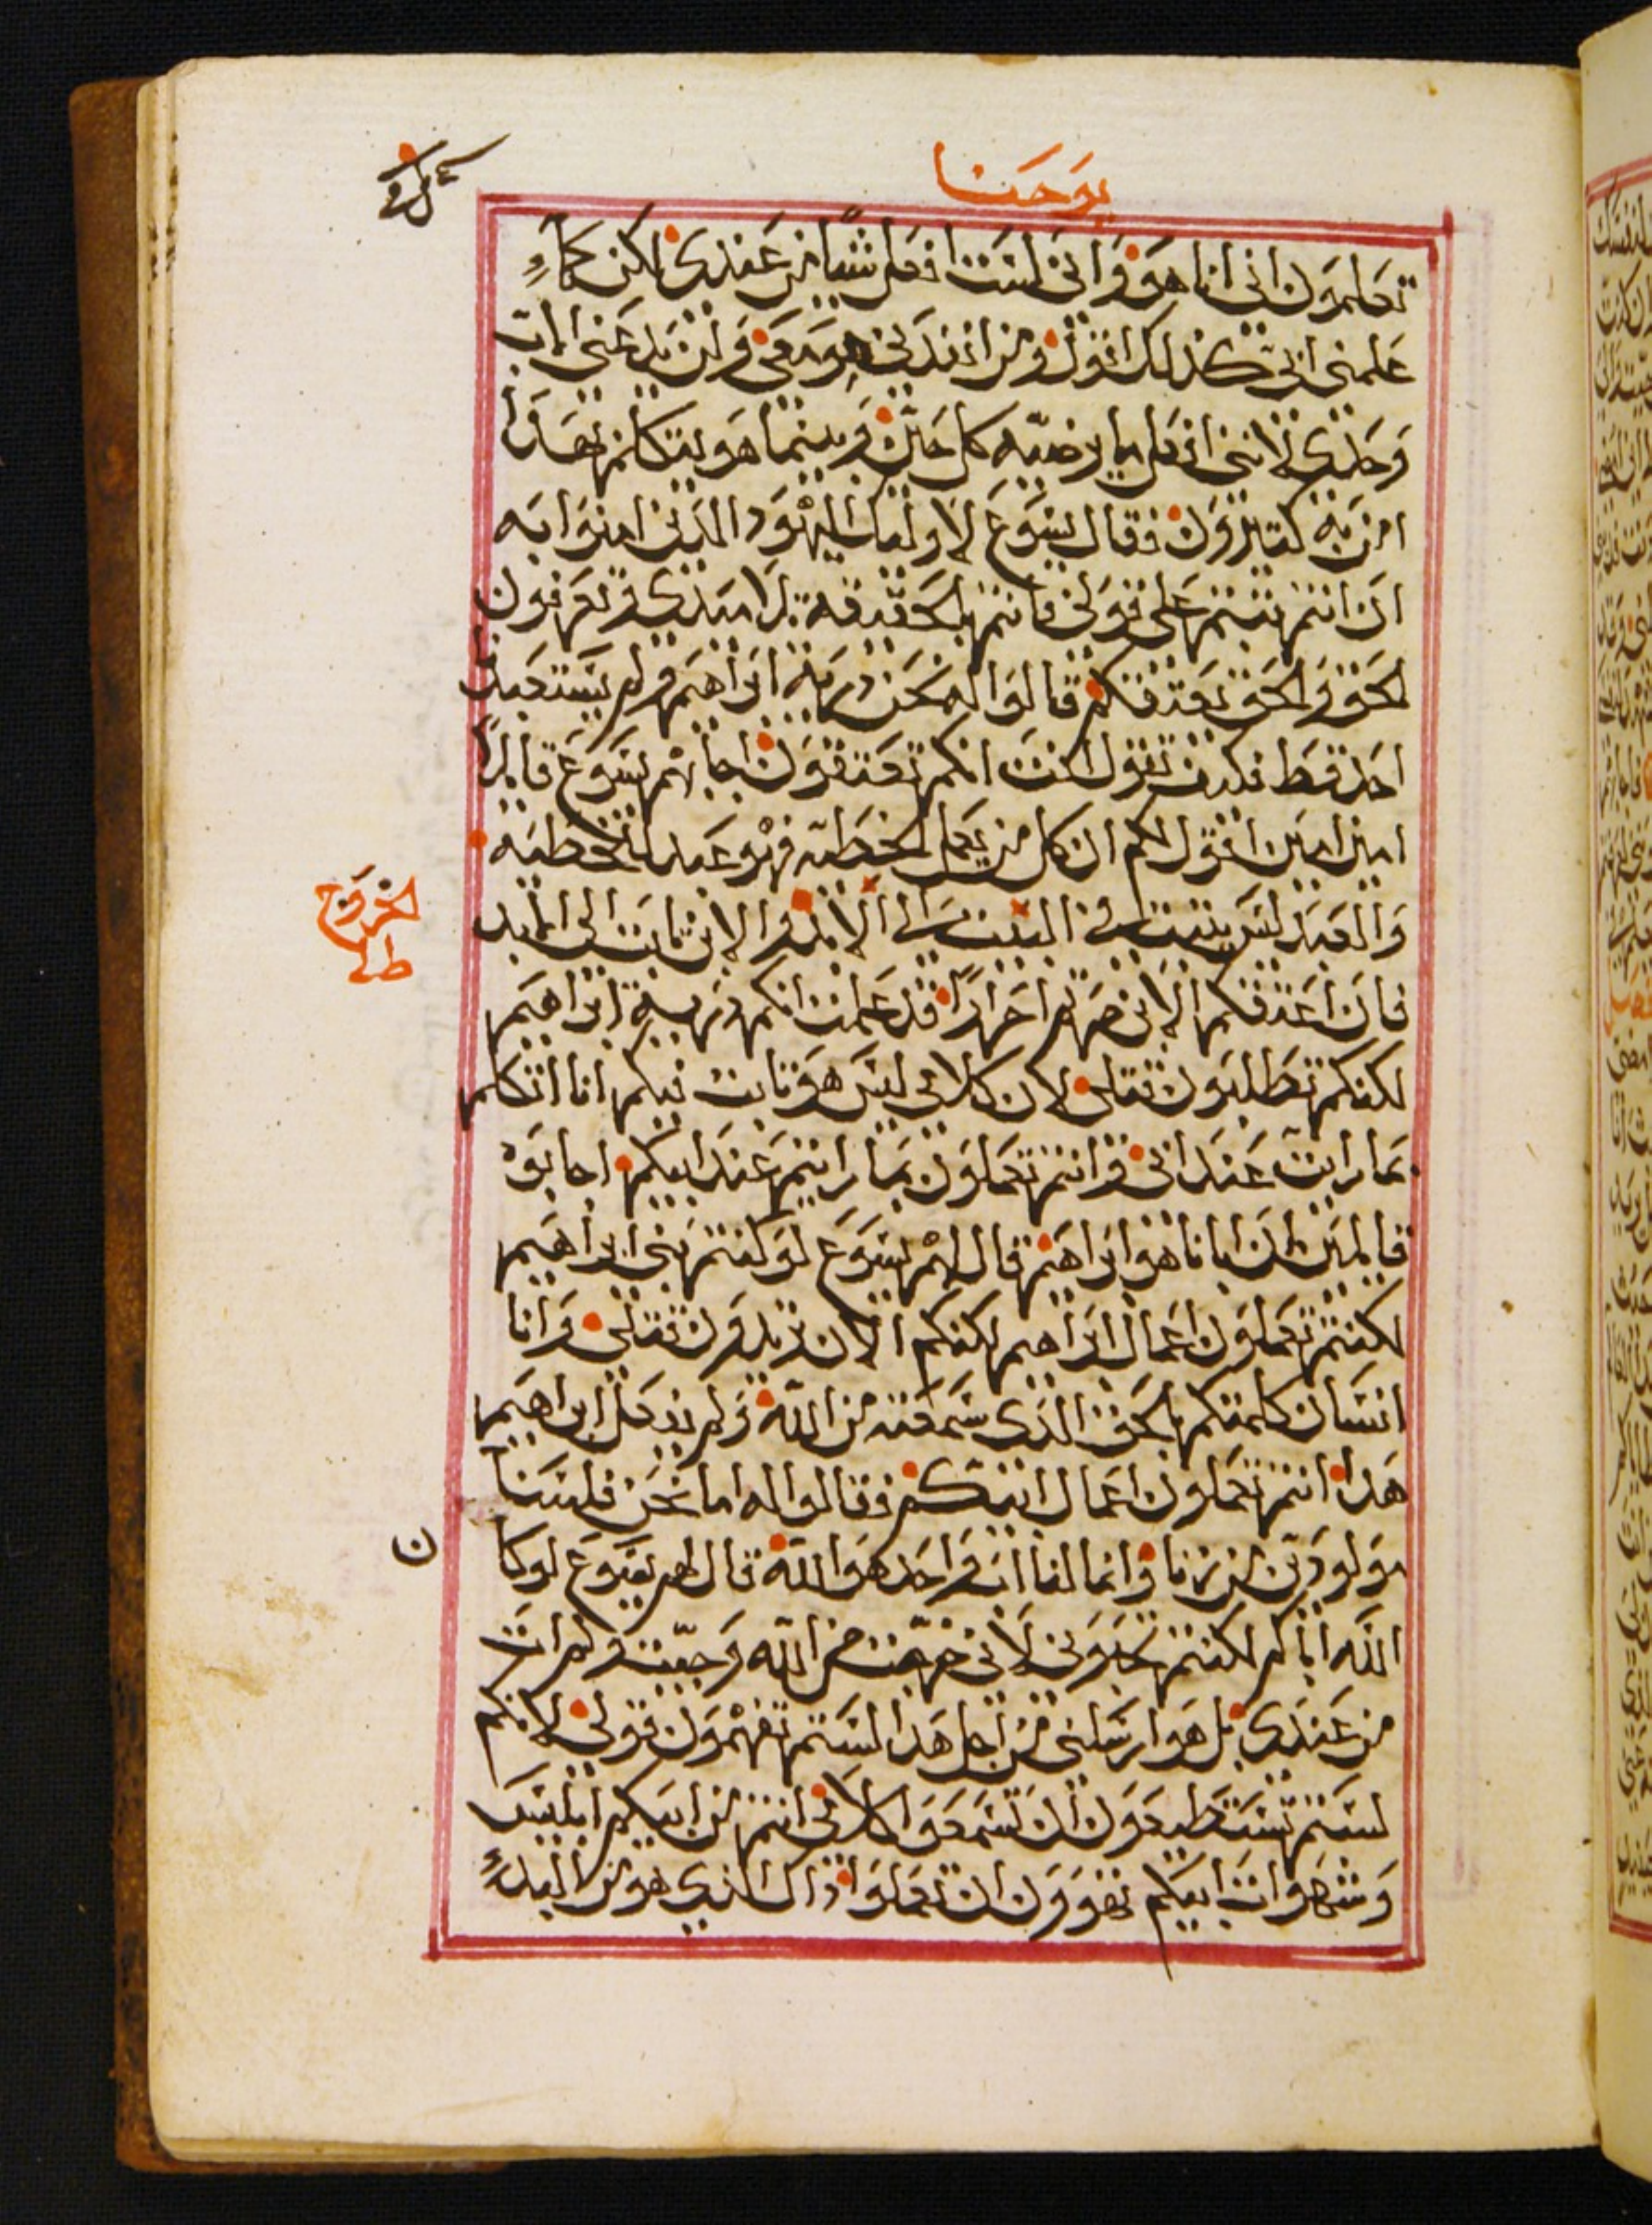 يوحنا
تعلمون انى انا هو وانى لست افعل شيا من عندى لكن كما
علمنى ابى كذلك اقول ومن انفدنى هو معى ولن يدعنى الاب
وحدى لاننى افعل ما يرضيه كل حين وبينما هو يتكلم بهدا
امن به كتيرون فقال يسوع لاوليك اليهود الدين امنوا به
ان انتم تبتم على قولى فانتم بالحقيقة تلاميدى وتعرفون
الحق والحق يعتقكم قالوا له نحن درية ابراهيم ولم يستعبدنا
احد قط فكيف تقول انت انكم تعتقون اجابهم يسوع قايلًا
امين امين اقول لكم ان كل من يعمل الخطية فهو عبد للخطيه
والعبد ليس يتبت فى البيت الى الابد والابن تابت الى الابد
فان اعتقكم الابن صرتم احرارًا قد علمت انكم درية ابراهيم
لكنكم تطلبون قتلى لان كلامى ليس هو تابت فيكم انا اتكلم
بما رايت عند ابى وانتم تعملون بما رايتم عند ابيكم اجابوه
قايلين ان ابانا هو ابراهيم قال لهم يسوع لو كنتم بنى ابراهيم
لكنتم تعملون اعمال ابراهيم لكنكم الان تريدون قتلى وانا
انسان كلمتكم بالحق الدى سمعته من الله ولم يفعل ابراهيم
هدا انتم تعملون اعمال ابيكم فقالوا له اما نحن فلسنا
مولودين من زنا وانما لنا اب واحد هو الله قال لهم يسوع لو كا
ن
الله اباكم لكنتم تحبونى لانى خرجت من الله وجيت ولم ات
من عندى بل هو ارسلنى من اجل هدا لستم تفهمون قولى لانكم
لستم تستطيعون ان تسمعوا كلامى انتم من ابيكم ابليس
وشهوات ابيكم تهوون ان تعملوا داك الدى هو من البدء
الخروج